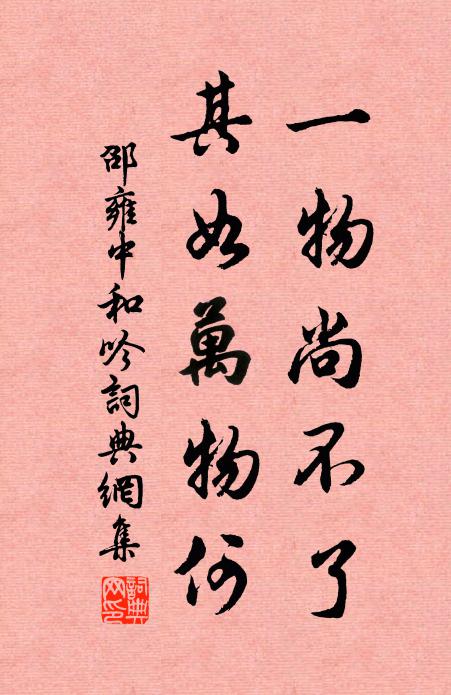 一物尚不了
其如萬物何
邵雍中和吟詞典網集
詞典
网印